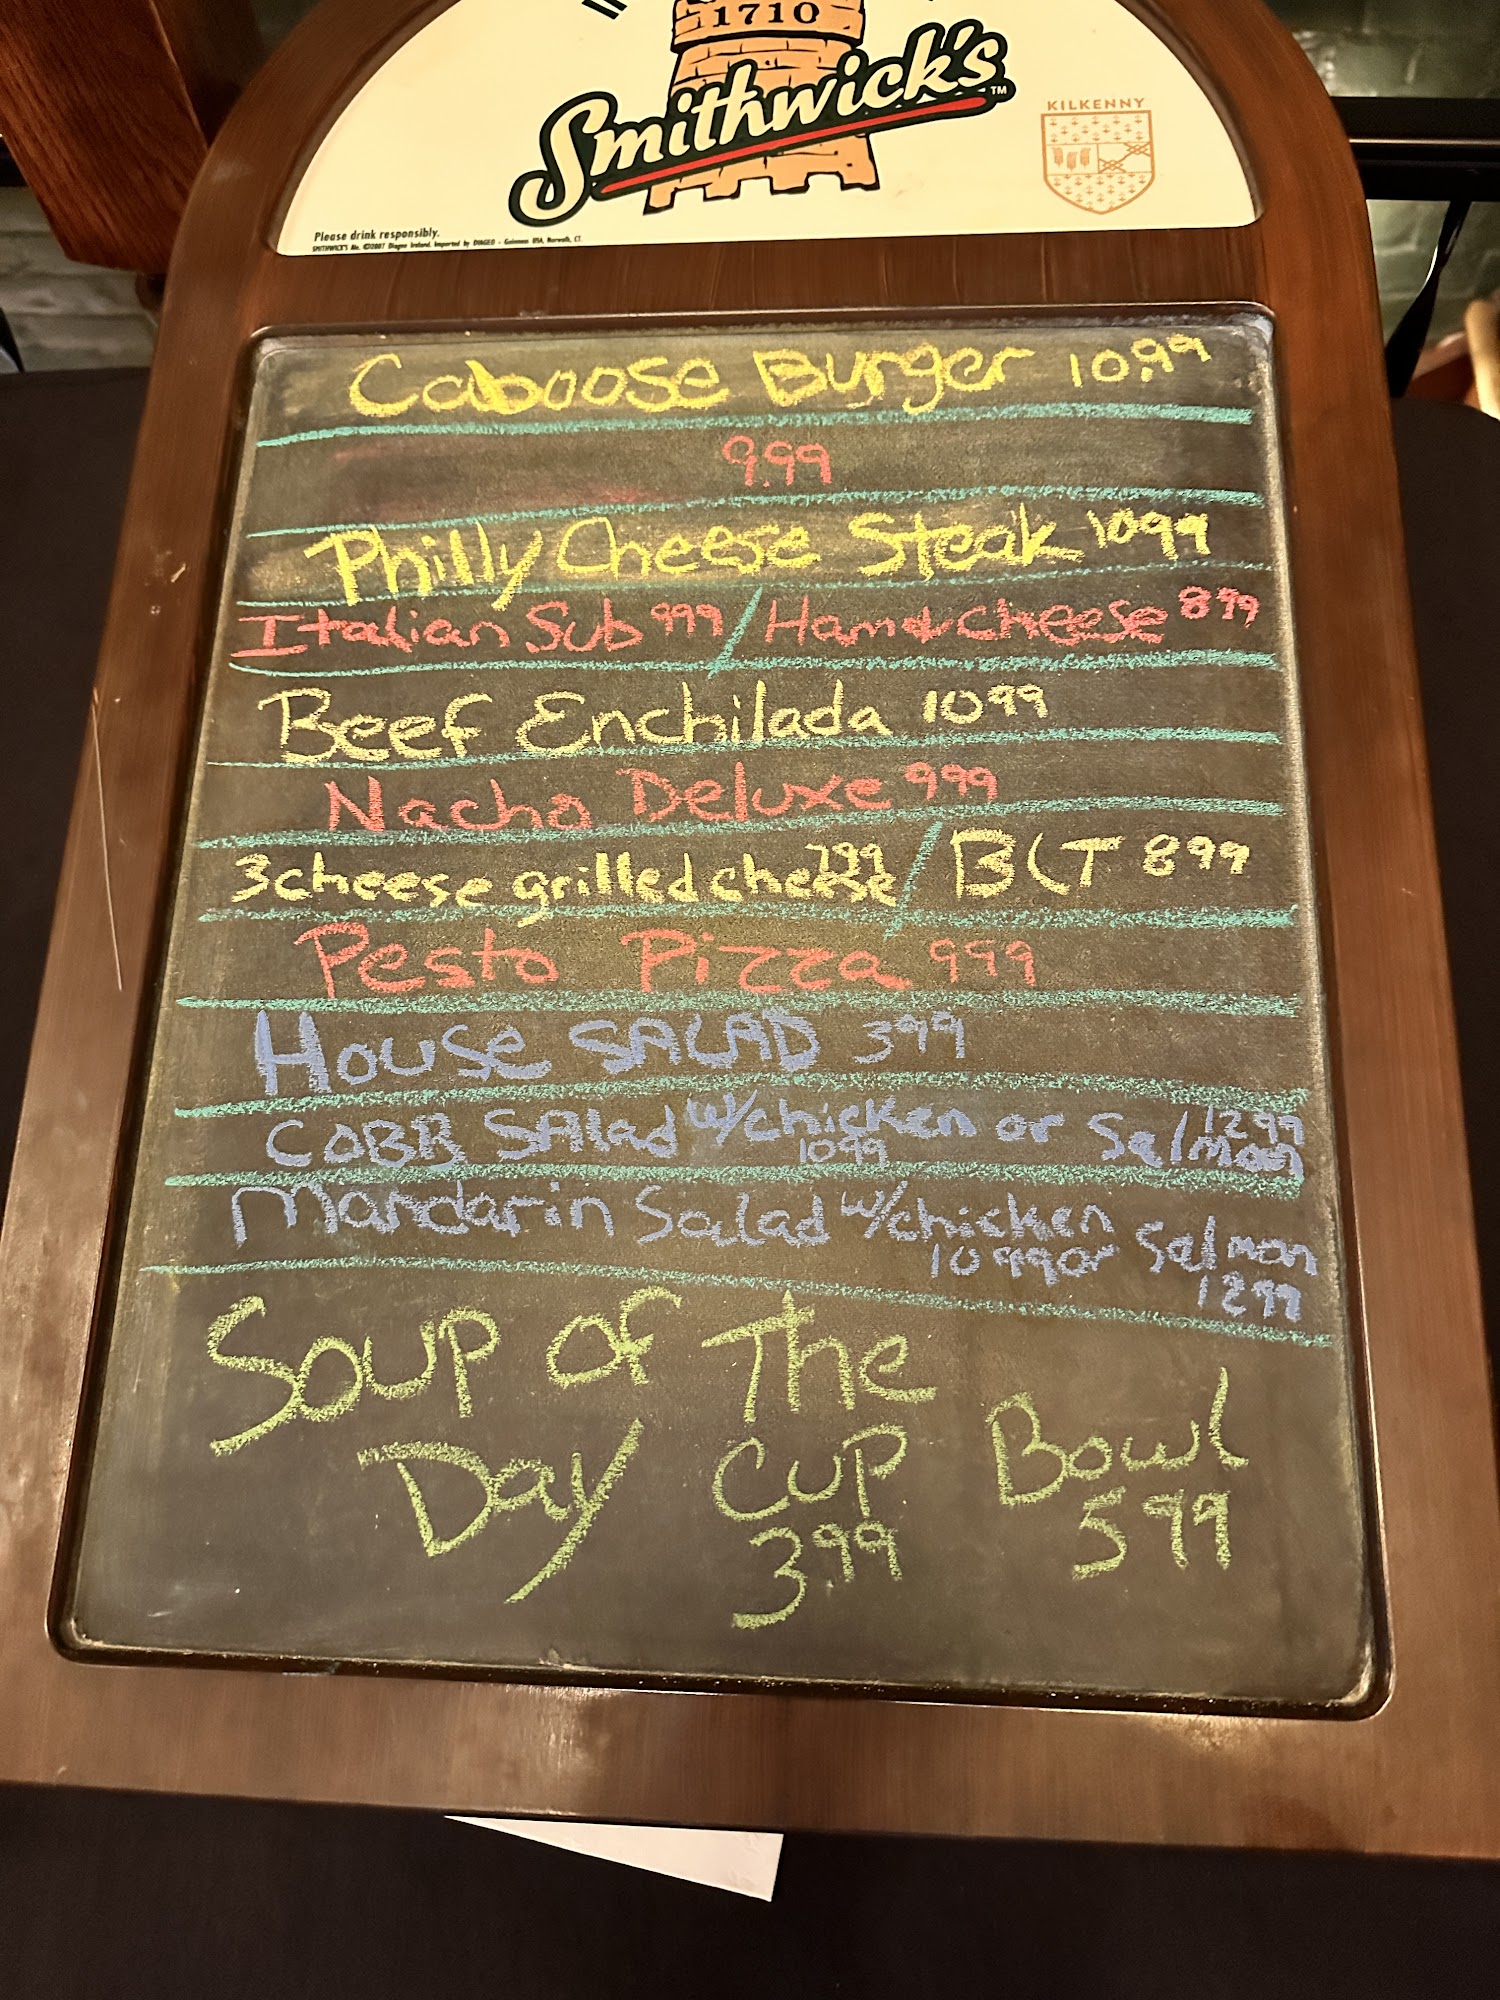 1710
Smithwick's™
KILKENNY
Please drink responsibly.
SMITHWICK'S Ale. ©2007 Diageo Ireland. Imported by DIAGEO - Guinness USA, Norwalk, CT.
Caboose Burger 10.99
9.99
Philly Cheese Steak 1099
Italian Sub 999 / Ham & cheese 899
Beef Enchilada 1099
Nacho Deluxe 999
3 cheese grilled cheese 799 / BLT 899
Pesto Pizza 999
House SALAD 399
COBB SAlad w/chicken 1099 or Salmon 1299
Mandarin Salad w/chicken 1099 or Salmon 1299
Soup of The
Day Cup Bowl
399 599